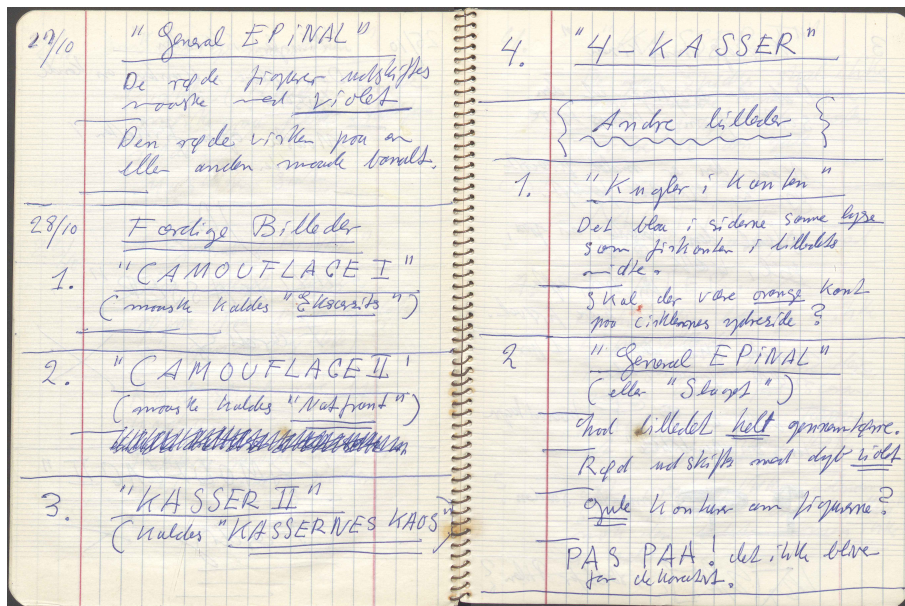 27/10 "General EPiNAL"
De røde figurer udskiftes
maaske med violet
Den røde virker paa en
eller anden maade banalt.
28/10 Færdige Billeder
1. "CAMOUFLAGE I"
(maaske kaldes "Eksersits")
2. "CAMOUFLAGE II"
(maaske kaldes "Natfront")
3. "KASSER II"
(kaldes "KASSERNES KAOS")
4. "4-KASSER"
{ Andre billeder }
1. "Kugler i Kanten"
Det blaa i siderne samme lyse
som firkanten i billedets
midte.
Skal der være orange kant
paa cirklernes yderside?
2 "General EPiNAL"
(eller "Slaget")
lad billedet helt gennemtørre.
Rød udskifte med dybt violet
gule konturer om figurerne?
PAS PAA! det ikke bliver
for dekorativt.